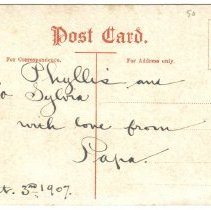 50
Post Card.
For Correspondence.
For Address only.
Phyllis and
Sylvia
with love from
Papa.
t. 3rd 1907.